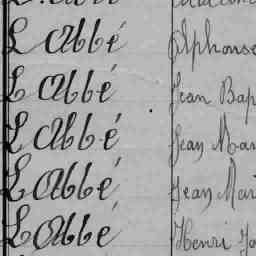 L'Abbé Alphonse
L'Abbé Jean Bap
L'Abbé Jean Mar
L'Abbé Jean Mari
L'Abbé Henri Jo